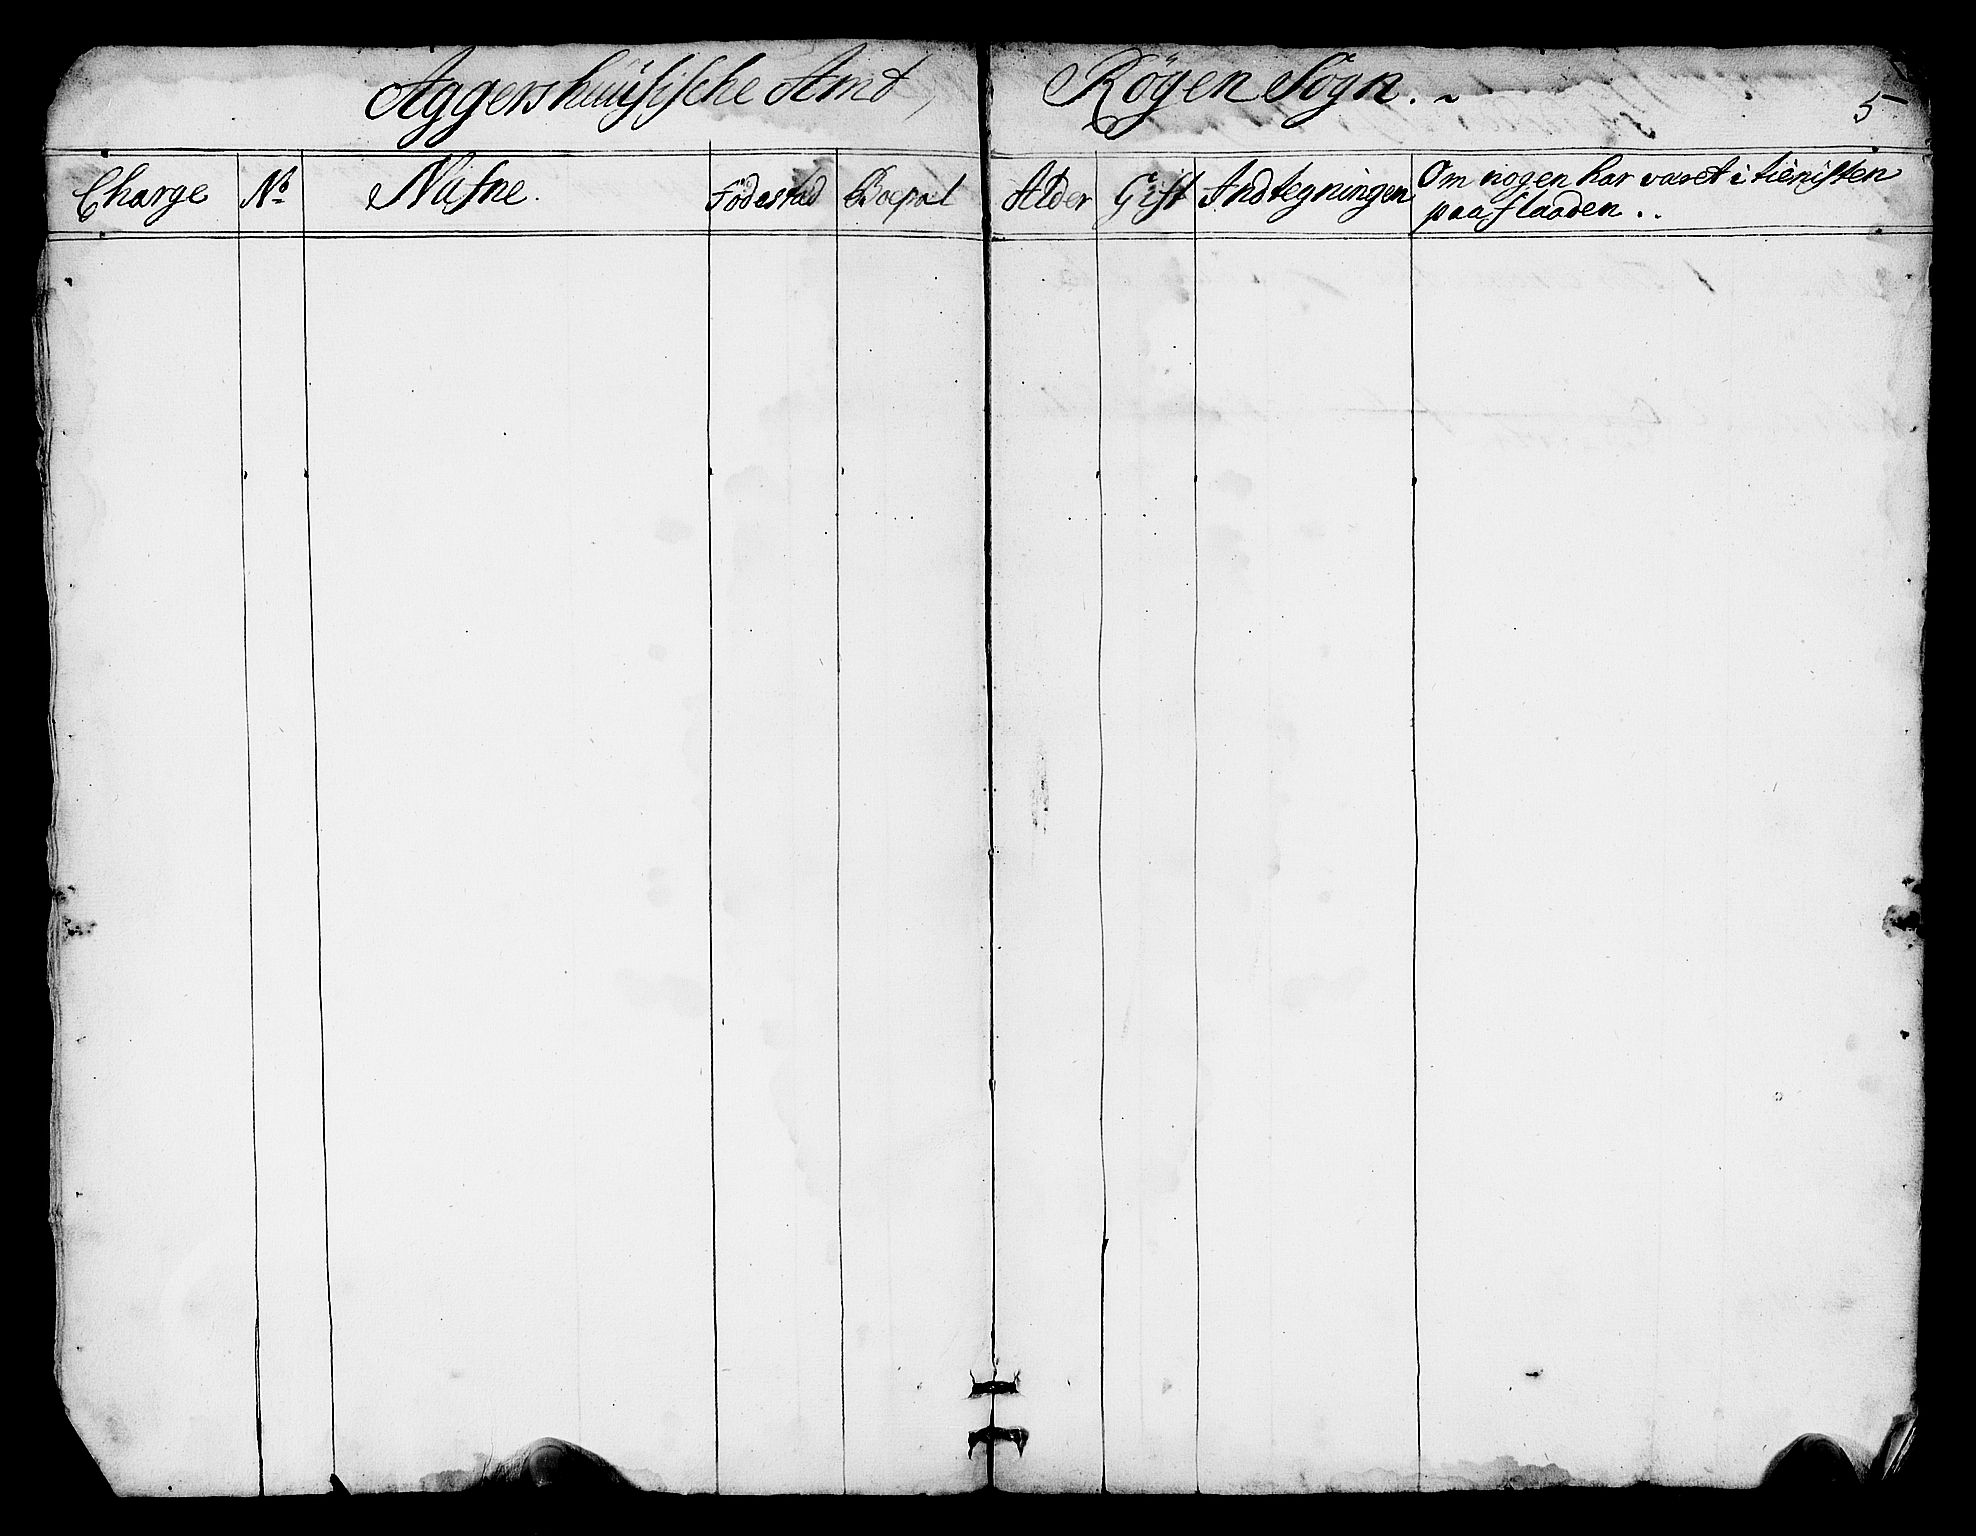 Aggershuüsische Amt, Rögen Sogn.
5
Charge No Nafne. Födestad Boepæl Alder Gift Andtegningen Om nogen har været i tienisten
paa flaaden..